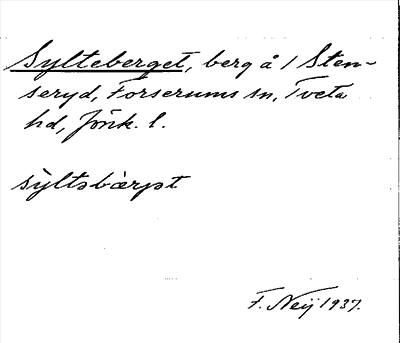 Sylteberget, berg å 1 Sten-
seryd, Forserums sn, Tveta
hd, Jönk. l.
sỳltsbàrjət
F. Neij 1937.